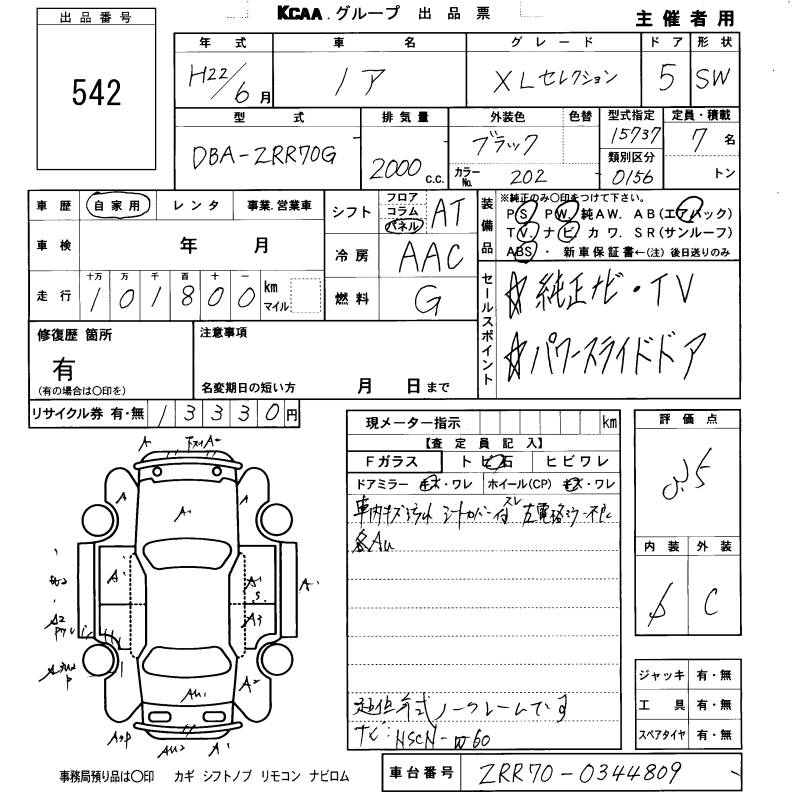 KCAA.グループ 出品票
主催者用
出品番号
542
年式 車名 グレード ドア 形状
H22/6月 ノア XLセレクション 5 SW
型式 排気量 外装色 色替 型式指定 定員・積載
DBA-ZRR70G 2000c.c. ブラック 15737 7名
カラーNo. 202 類別区分 0156 トン
車歴 自家用 レンタ 事業.営業車
シフト フロア コラム パネル AT
装備品 ※純正のみ〇印をつけて下さい。
PS PW 純AW. AB(エアバック)
TV. ナビ カワ. SR(サンルーフ)
ABS ・ 新車保証書←(注)後日送りのみ
車検 年 月
冷房 AAC
走行 十万 万 千 百 十 一 km マイル
101800
燃料 G
セールスポイント
☆純正ナビ・TV
☆パワースライドドア
修復歴 箇所
有
(有の場合は〇印を)
注意事項
名変期日の短い方 月 日まで
リサイクル券 有・無 13330円
現メーター指示 km
【査定員記入】
Fガラス トビ石 ヒビワレ
ドアミラー キズ・ワレ ホイール(CP) キズ・ワレ
車内キズ
ナビ:HSCN-W60
評価点
内装 外装
C
ジャッキ 有・無
工具 有・無
スペアタイヤ 有・無
A A1 A A1 A1 S A1 A3 A2 A2 A1
事務局預り品は〇印 カギ シフトノブ リモコン ナビロム
車台番号 ZRR70-0344809